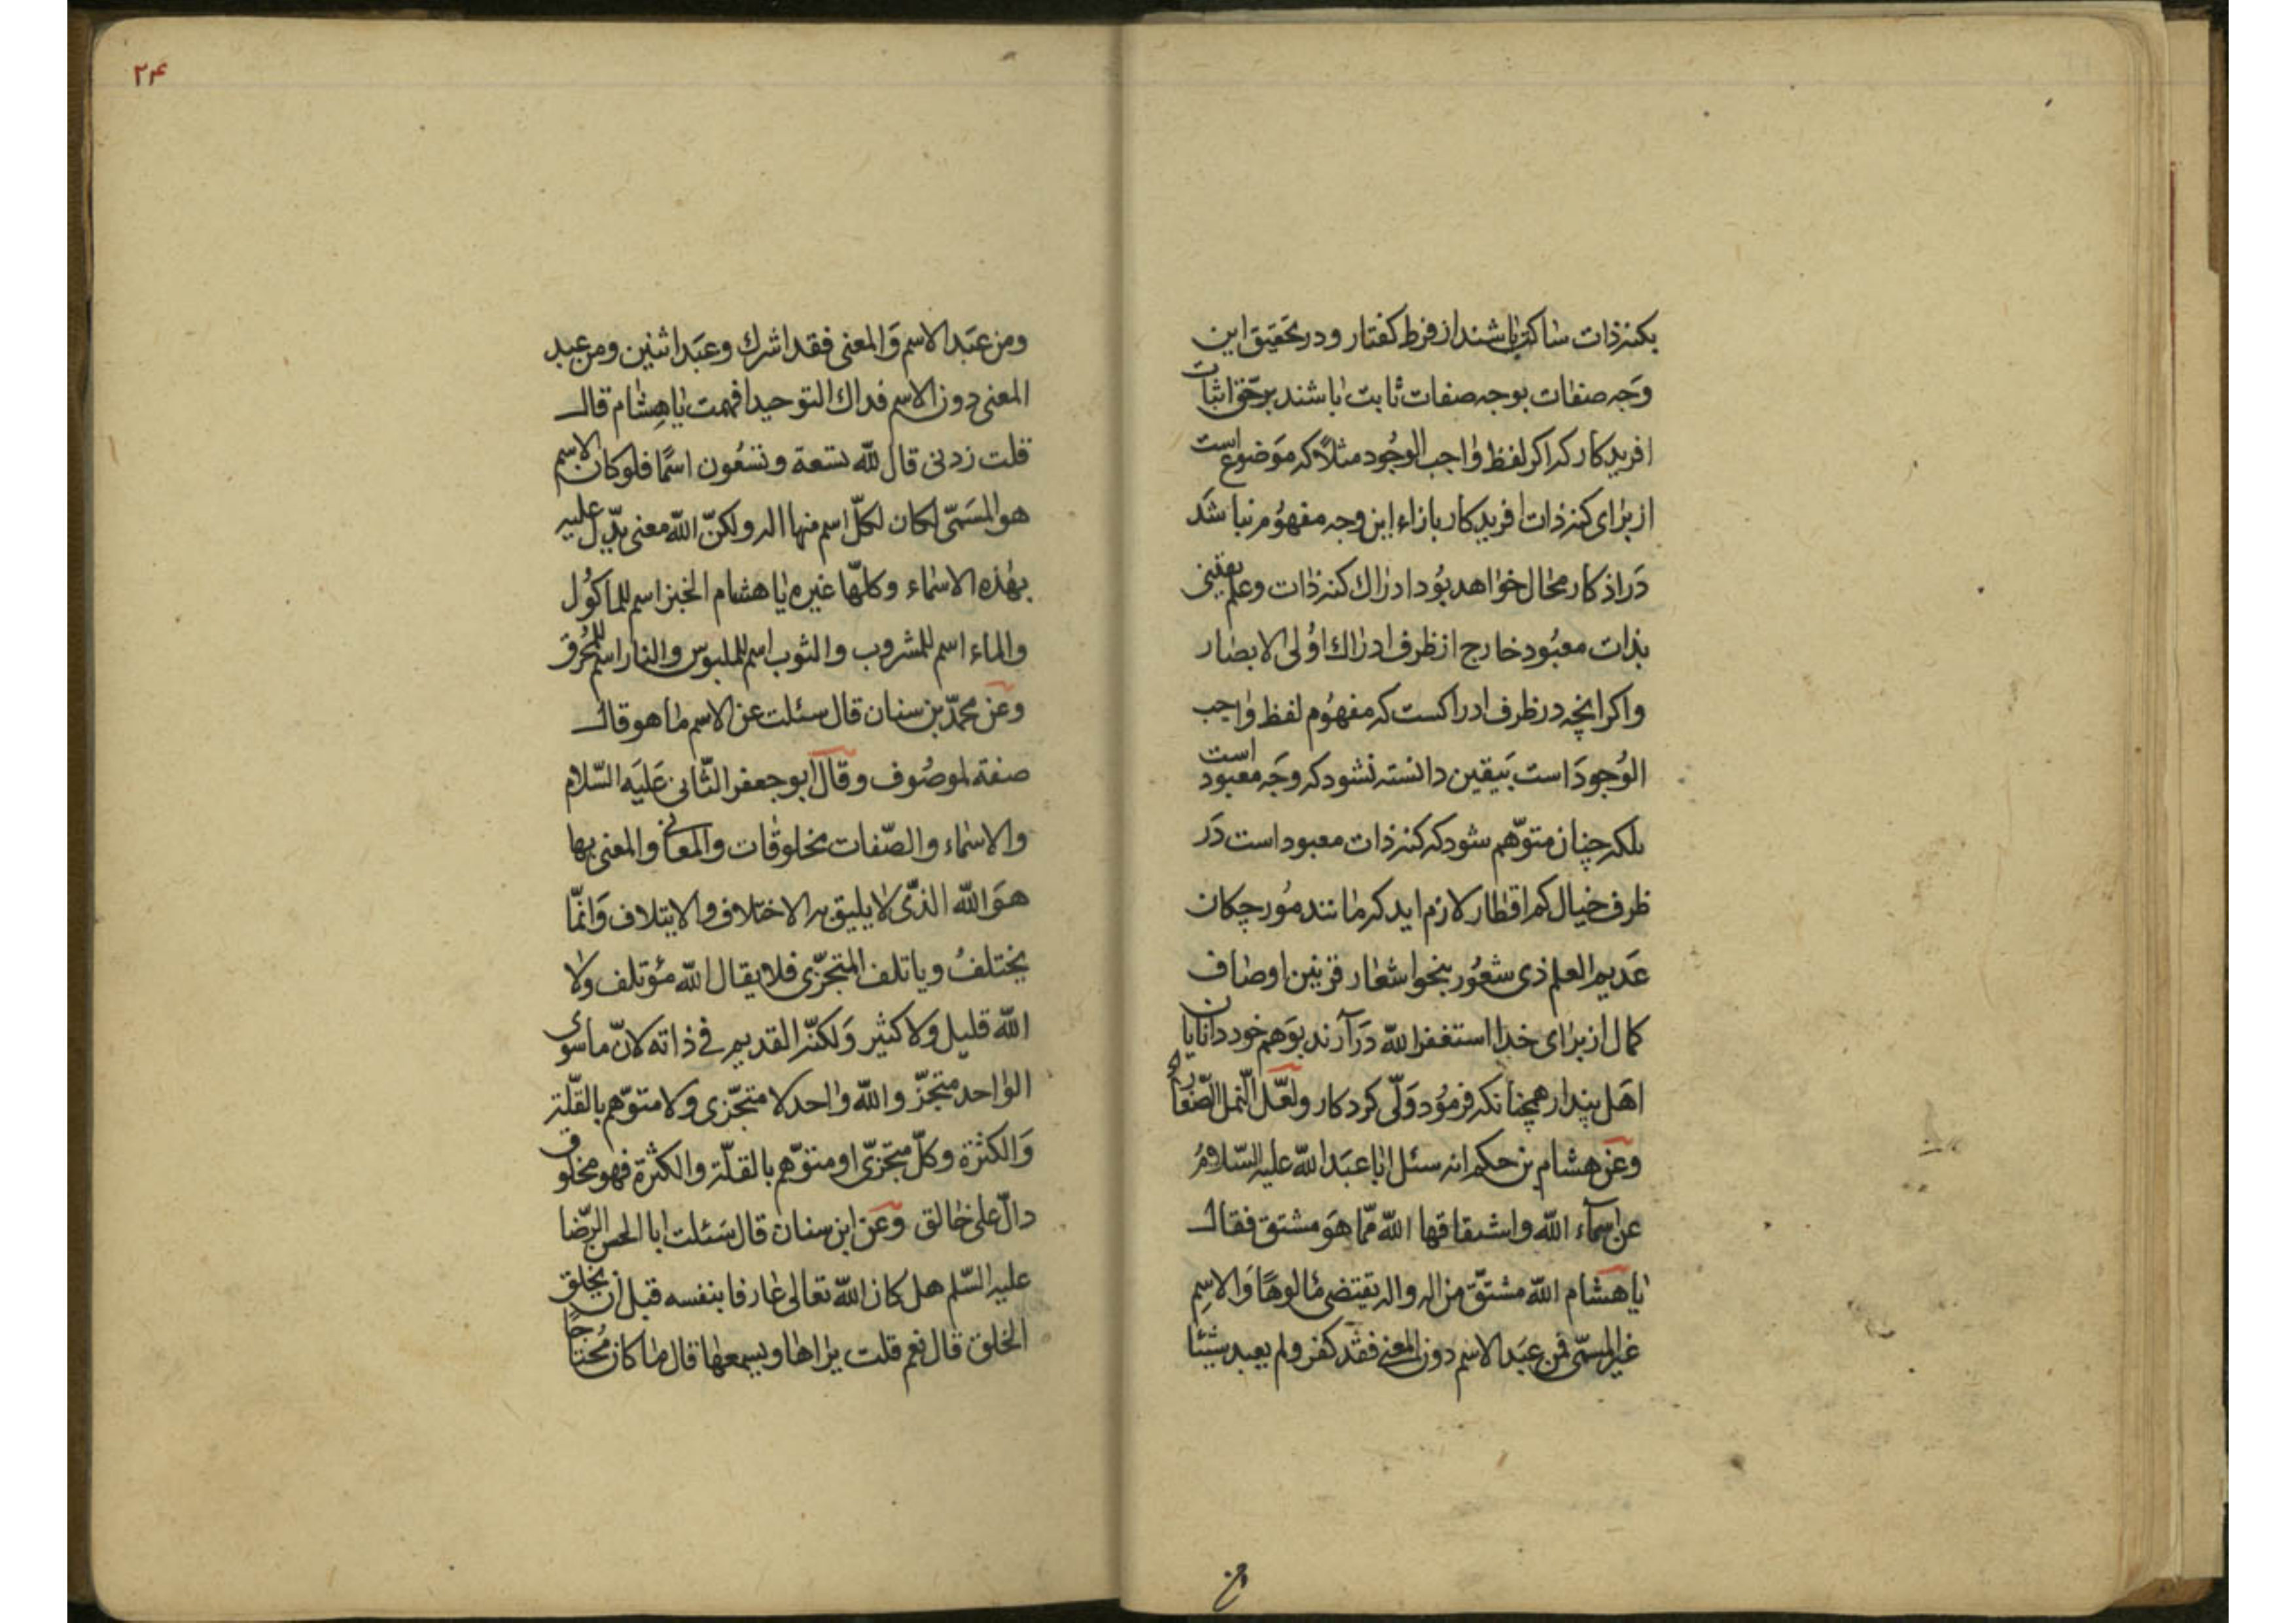 بکنه ذات ساکت باشند از فرط کفتار و در تحقیق این
وجه صفات بوجه صفات ثابت باشند بر حق اثبات
افریدکار که اکر لفظ واجب الوجود مثلاً که موضوع است
از برای کنه ذات افریدکار بازاء این وجه مفهوم نباشد
در اذکار محال خواهد بود ادراك کنه ذات و علم یقینی
بذات معبود خارج از ظرف ادراك اولی الابصار
و اکر انچه در ظرف ادراکست که مفهوم لفظ واجب
الوجود است بیقین دانسته نشود که وجه معبود است
بلکه چنان متوهم شود که کنه ذات معبود است در
ظرف خیال کم اقطار لازم اید که مانند مورچکان
عدیم العلم ذی شعور بنحو اشعار قرنین اوصاف
کمال از برای خدا استغفر الله درآرند بوهم خود دانایان
اهل پندار همچنانکه فرموده ولی کردکار ولعل النمل الصغار
وعن هشام بن حکم انه سئل ابا عبد الله علیه السلام
عن اسمآء الله واشتقاقها الله مما هو مشتق فقال
یا هشام الله مشتق من اله واله یقتضی مالوهاً والاسم
غیر المسمی فمن عبد الاسم دون المعنی فقد کفر ولم یعبد شیئا
۲۴
ومن عبد الاسم والمعنی فقد اشرك وعبد اثنین ومن عبد
المعنی دون الاسم فداك التوحید افهمت یا هشام قال
قلت زدنی قال لله تسعة وتسعون اسمًا فلو کان الاسم
هو المسمّی لکان لکلّ اسم منها اله ولکنّ الله معنی یدّل علیه
بهذه الاسماء وکلهّا غیره یا هشام الخبز اسم للماکول
والماء اسم للمشروب والثوب اسم للملبوس والنار اسم للمحرق
وعن محمّد بن سنان قال سئلت عن الاسم ما هو قال
صفة لموصوف وقال ابو جعفر الثانی علیه السّلام
والاسماء والصّفات مخلوقات والمعانی والمعنی بها
هو الله الذّی لا یلیق به الاختلاف والایتلاف وانمّا
یختلف ویاتلف المتجزّی فلا یقال الله مؤتلف ولا
الله قلیل ولا کثیر ولکنّه القدیم فی ذاته لانّ ما سوی
الواحد متجزّ والله واحد لا متجّزی ولا متوّهم بالقلّة
والکثرة وکلّ متجزّی او متوّهم بالقلّة والکثرة فهو مخلوق
دالّ علی خالق وعن ابن سنان قال سئلت ابا الحسن الرّضا
علیه السّلم هل کان الله تعالی عارفا بنفسه قبل ان یخلق
الخلق قال نعم قلت یراها ویسمعها قال ما کان محتاجاً